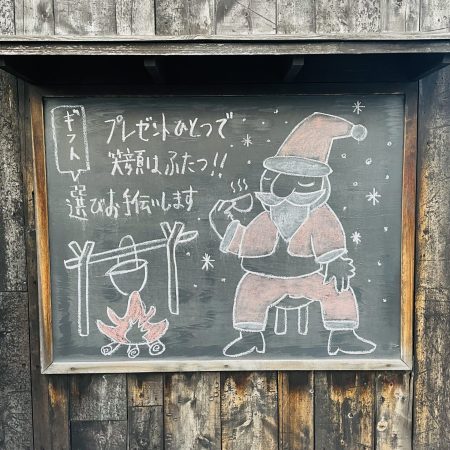 プレゼントひとつで
笑顔はふたつ!!
ギフト
選びお手伝いします